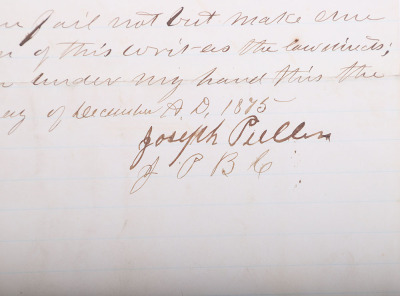 fail not but make due
of this writ as the law directs;
under my hand this the
day of December A.D. 1875
Joseph Pullen
J P B C